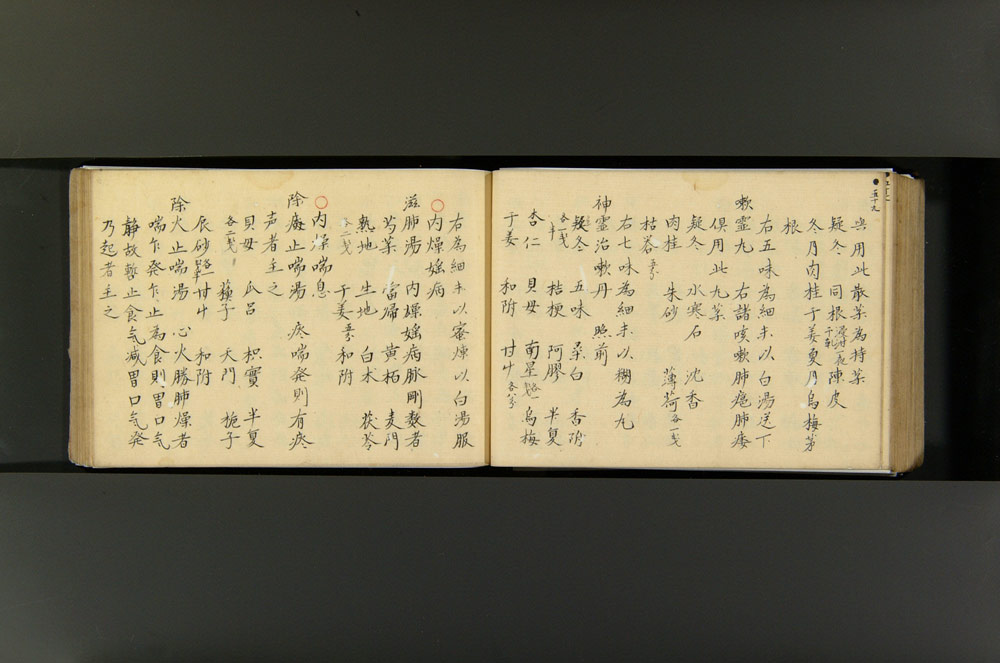 五十九
共用此散薬為持薬
疑冬 同根 陳皮
冬月肉桂 干姜 夏月烏梅 等
根
右五味為細末以白湯送下
嗽霊丸 右諸咳嗽肺癰肺痿
俱用此丸薬
疑冬 水寒石 沈香
肉桂 朱砂 薄荷 各一戔
枯苓 五分
右七味為細末以糊為丸
神霊治嗽丹 照前
疑冬 五味 桑白 香附
各一戔半 桔梗 阿膠 半夏
杏仁 貝母 南星 烏梅
干姜 和附 甘草 各八分
右為細末以蜜煉以白湯服
○内燥婬病
滋肺湯 内燥婬病脉剛数者
芍薬 當帰 黄柏 麦門
熟地 生地 白朮 茯苓
各二戔 干姜 五分 和附
○内燥喘息
除痰止喘湯 疼喘発則有疼
声者主之
貝母 瓜呂 枳實 半夏
各二戔 蘇子 天門 梔子
辰砂 甘草 和附
除火止喘湯 心火勝肺燥者
喘乍発乍止為食則胃口気
静故暫止食気減胃口気発
乃起者主之